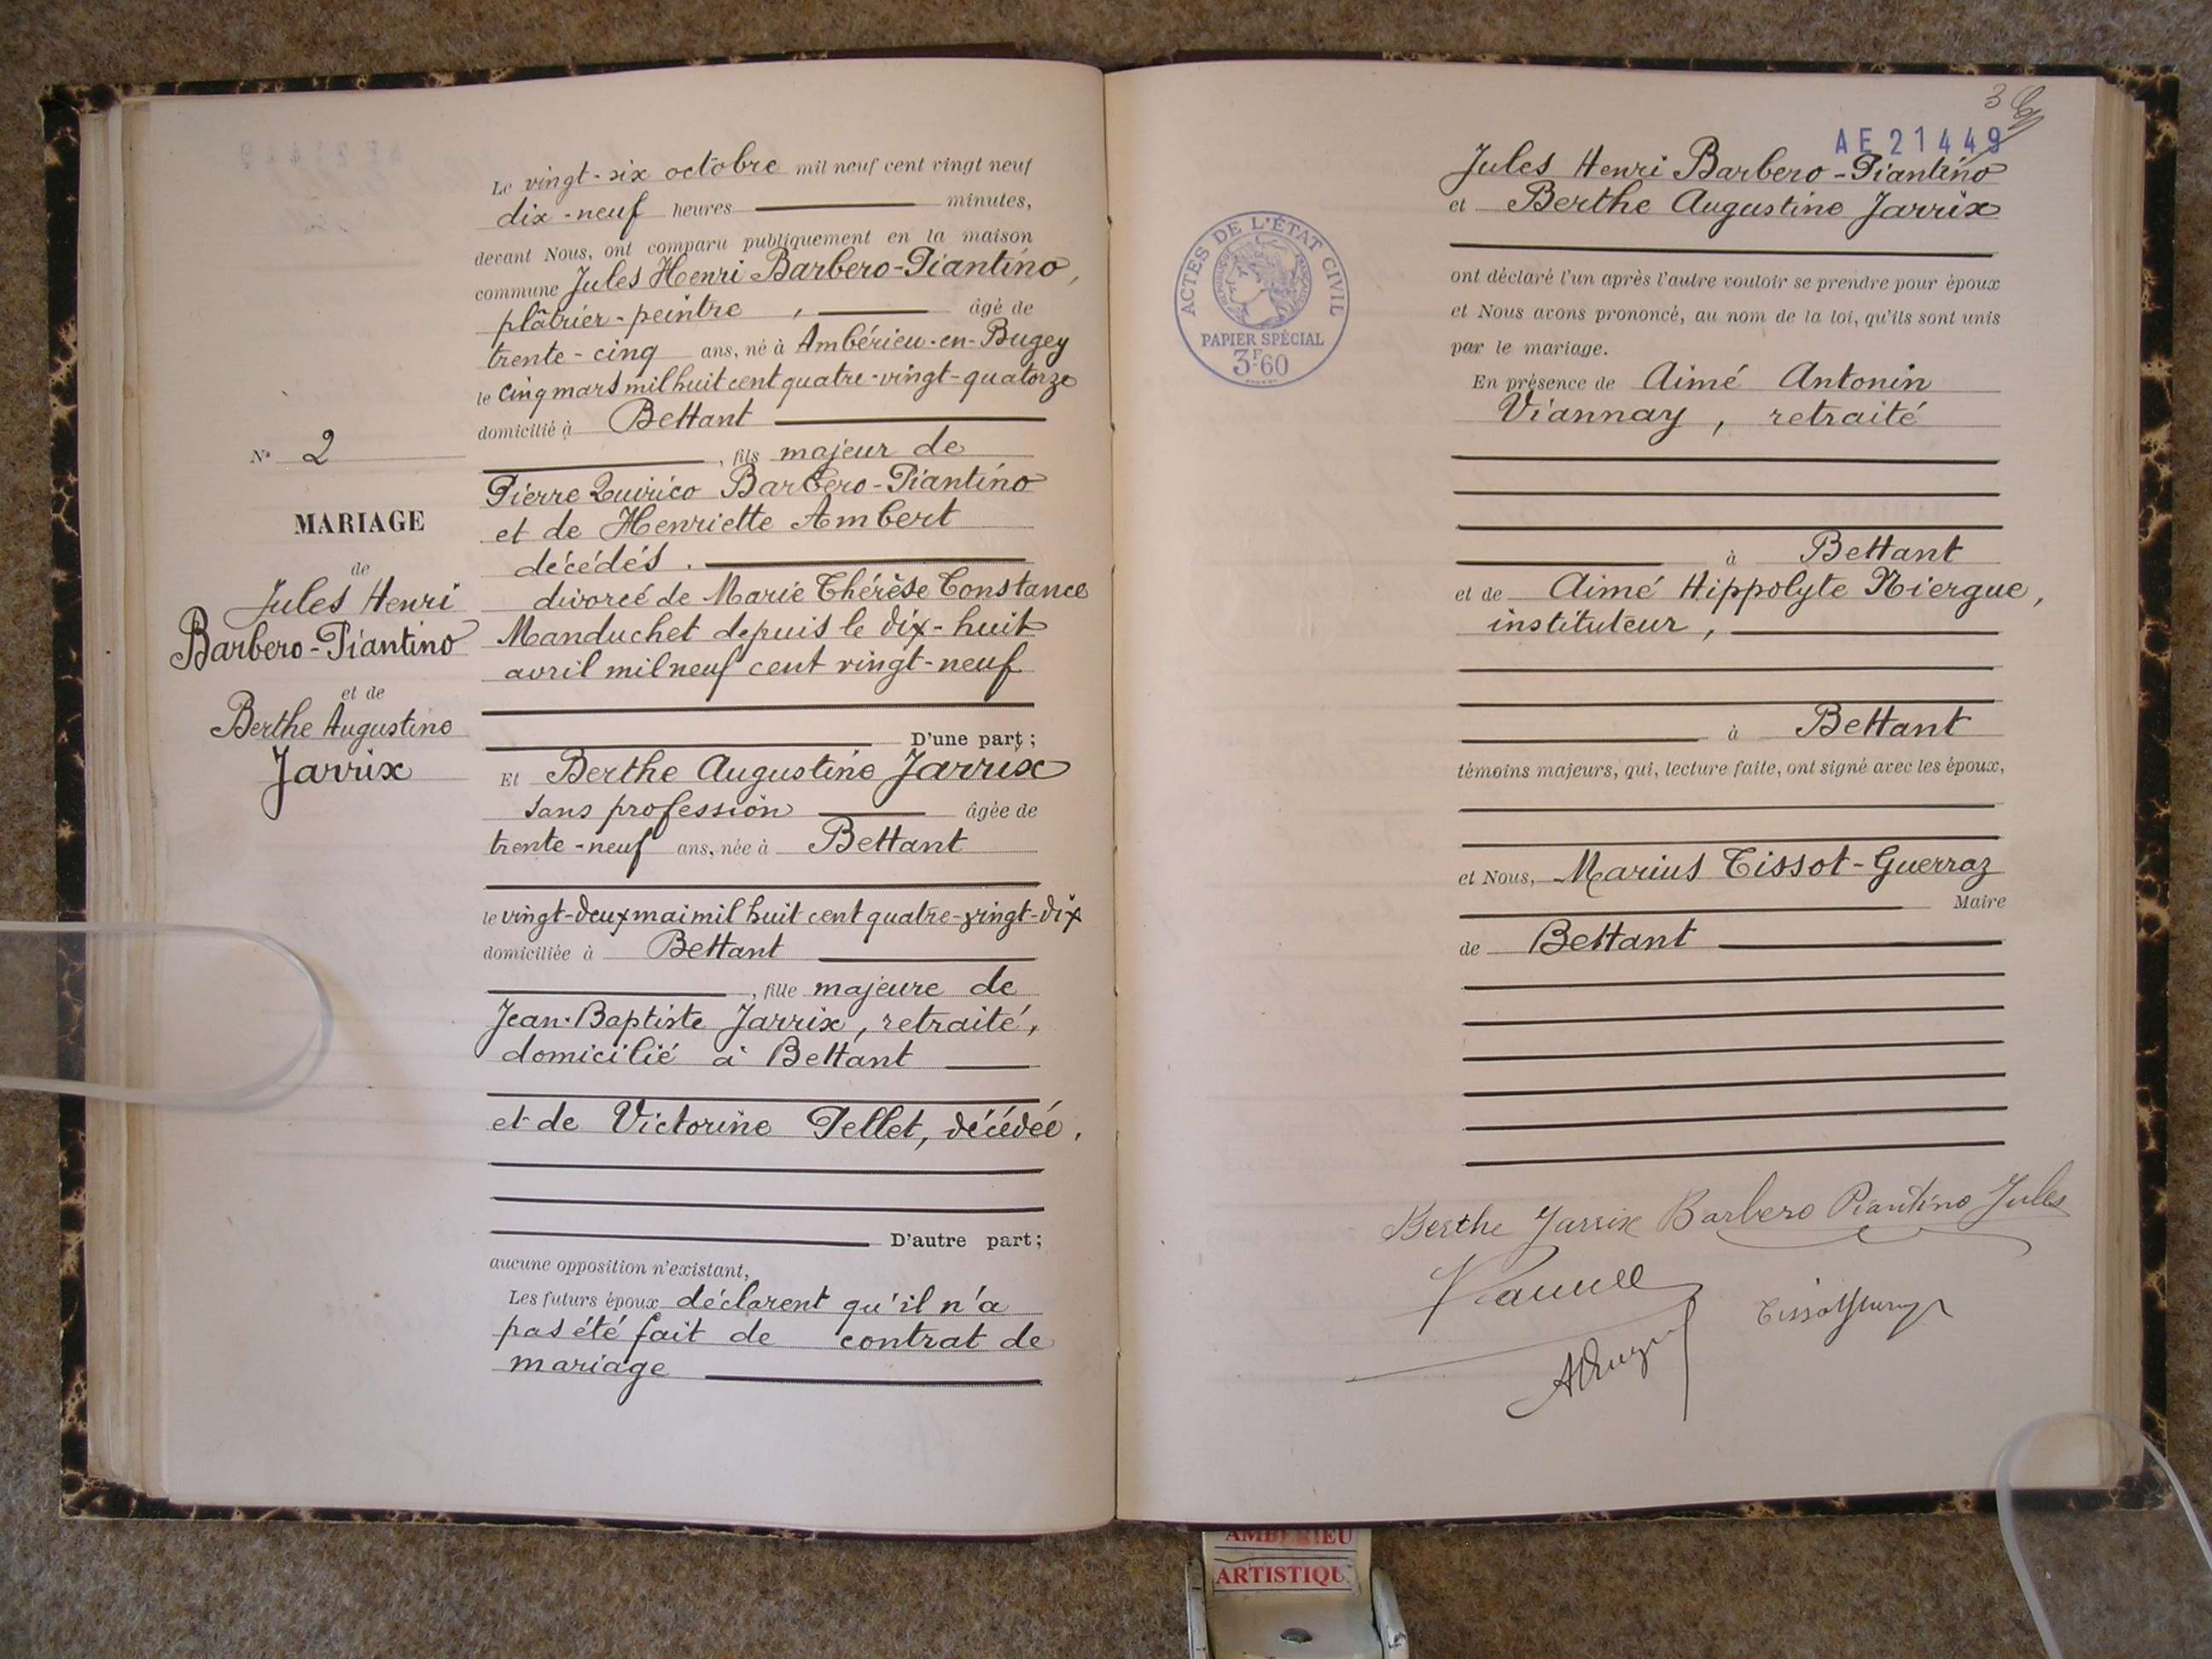 Le vingt-six octobre mil neuf cent vingt neuf
dix-neuf heures minutes,
devant Nous, ont comparu publiquement en la maison
commune Jules Henri Barbero-Piantino,
plâtrier-peintre, âgé de
trente-cinq ans, né à Ambérieu-en-Bugey
le cinq mars mil huit cent quatre-vingt-quatorze
domicilié à Bettant
, fils majeur de
Pierre Quirico Barbero-Piantino
et de Henriette Ambert
décédés.
divorcé de Marie Thérèse Constance
Manduchet depuis le dix-huit
avril mil neuf cent vingt-neuf
D'une part;
Et Berthe Augustine Jarrix
sans profession âgée de
trente-neuf ans, née à Bettant
le vingt-deux mai mil huit cent quatre-vingt-dix
domiciliée à Bettant
, fille majeure de
Jean-Baptiste Jarrix, retraité,
domicilié à Bettant
et de Victorine Pellet, décédée,
D'autre part;
aucune opposition n'existant,
Les futurs époux déclarent qu'il n'a
pas été fait de contrat de
mariage
N° 2
MARIAGE
de
Jules Henri
Barbero-Piantino
et de
Berthe Augustine
Jarrix
3
AE21449
Jules Henri Barbero-Piantino
et Berthe Augustine Jarrix
ont déclaré l'un après l'autre vouloir se prendre pour époux
et Nous avons prononcé, au nom de la loi, qu'ils sont unis
par le mariage.
En présence de Aimé Antonin
Viannay, retraité
à Bettant
et de Aimé Hippolyte Niergue,
instituteur,
à Bettant
témoins majeurs, qui, lecture faite, ont signé avec les époux,
et Nous, Marius Tissot-Guerraz
Maire
de Bettant
ACTES DE L'ÉTAT CIVIL
RÉPUBLIQUE FRANÇAISE
PAPIER SPÉCIAL
3F60
Berthe Jarrix Barbero Piantino Jules
AMBERIEU
ARTISTIQU